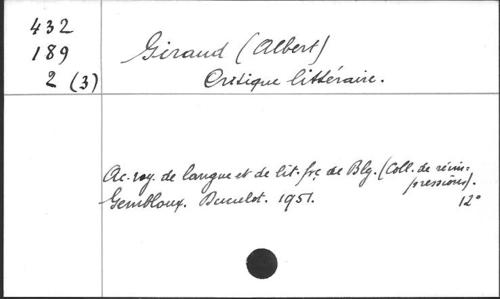 432
189
2 (3)
Giraud (Albert)
Critique littéraire.
Ac. roy. de langue et de lit. frç de Blg. (Coll. de réim-
pressions).
Gembloux. Duculot. 1951.
12°